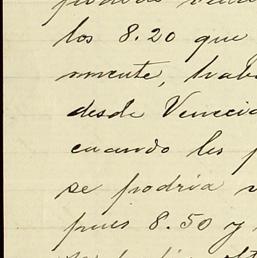 podría
los 8.20 que
mente, trab
desde Venecia
cuando les p
se podría v
pues 8.50 y